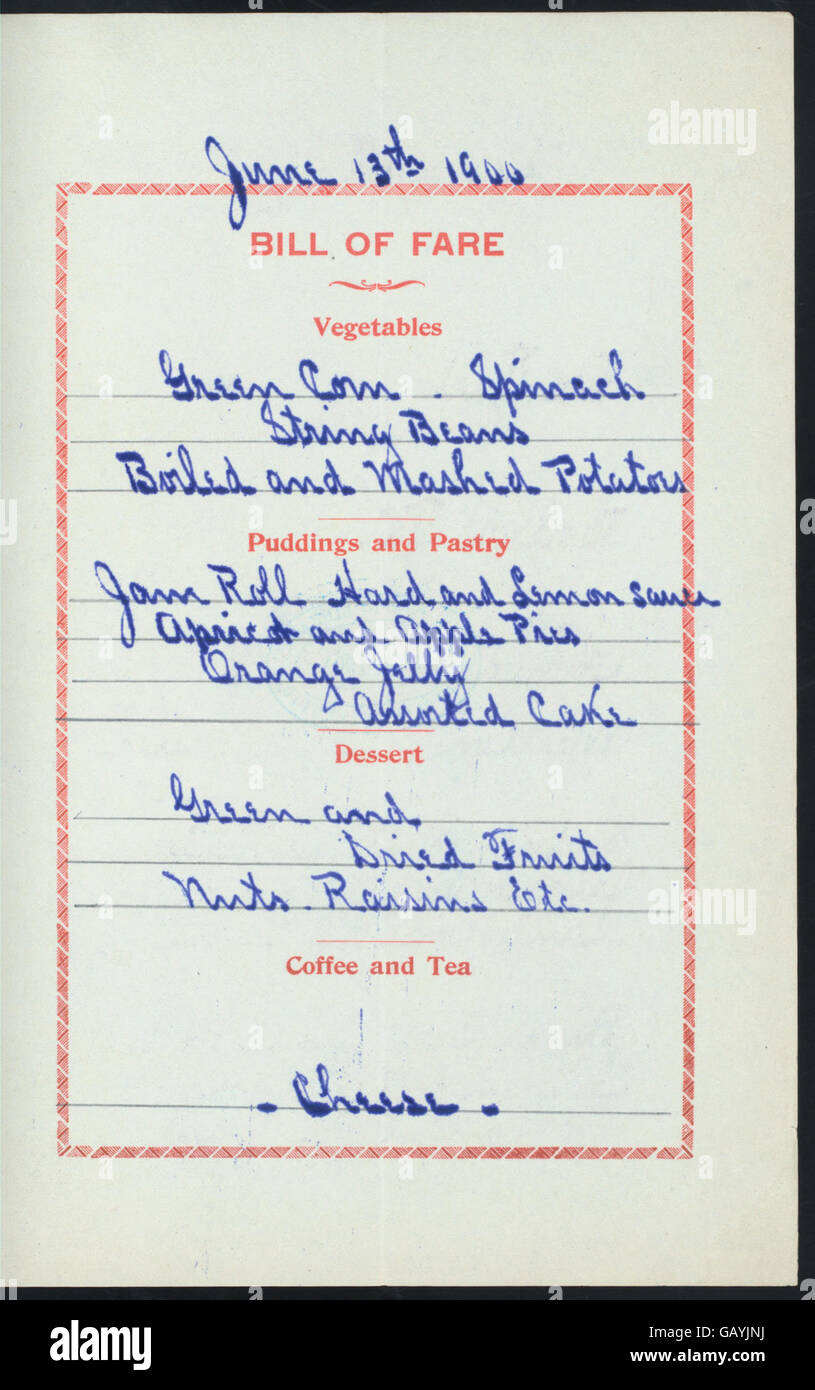 June 13th 1900
BILL OF FARE
Vegetables
Green Corn . Spinach
String Beans
Boiled and Mashed Potatoes
Puddings and Pastry
Jam Roll Hard and Lemon Sauce
Apricot and Apple Pies
Orange Jelly
Assorted Cake
Dessert
Green and
Dried Fruits
Nuts . Raisins Etc.
Coffee and Tea
- Cheese -
alamy
alamy
alamy
Image ID: GAYJNJ
www.alamy.com